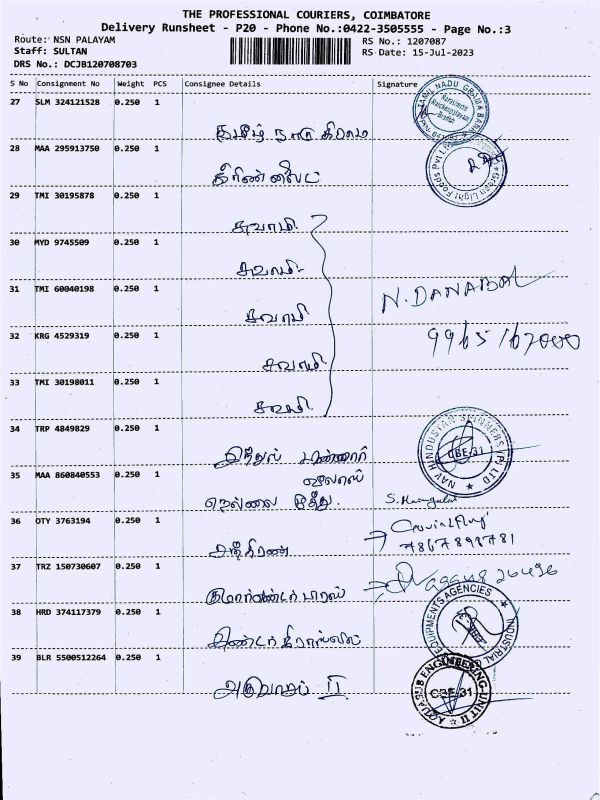 THE PROFESSIONAL COURIERS, COIMBATORE
Delivery Runsheet - P20 - Phone No.:0422-3505555 - Page No.:3
Route: NSN PALAYAM
RS No.: 1207087
Staff: SULTAN
RS Date: 15-Jul-2023
DRS No.: DCJB120708703
S No Consignment No Weight PCS Consignee Details Signature
27 SLM 324121528 0.250 1
தமிழ் நாடு கிராம
TAMIL NADU GRAMA BANK
28 MAA 295913750 0.250 1
கிரீன் லைட்
Green Light Foods Pvt Ltd
29 TMI 30195878 0.250 1
சுவாமி
30 MYD 9745509 0.250 1
சுவாமி
31 TMI 60040198 0.250 1
சுவாமி
N. DANABAL
32 KRG 4529319 0.250 1
சுவாமி
33 TMI 30198011 0.250 1
சுவாமி
34 TRP 4849829 0.250 1
NAV HINDUSTAN SPINNERS (P) LTD
CBE-31
35 MAA 860840553 0.250 1
நெல்லை முத்து.
36 OTY 3763194 0.250 1
ஸ்ரீ கிரண்
7867898781
37 TRZ 150730607 0.250 1
38 HRD 374117379 0.250 1
INDUSTRIAL EQUIPMENTS AGENCIES
39 BLR 5500512264 0.250 1
அக்வாசப் II
AQUASUB ENGINEERING UNIT II
CBE-31